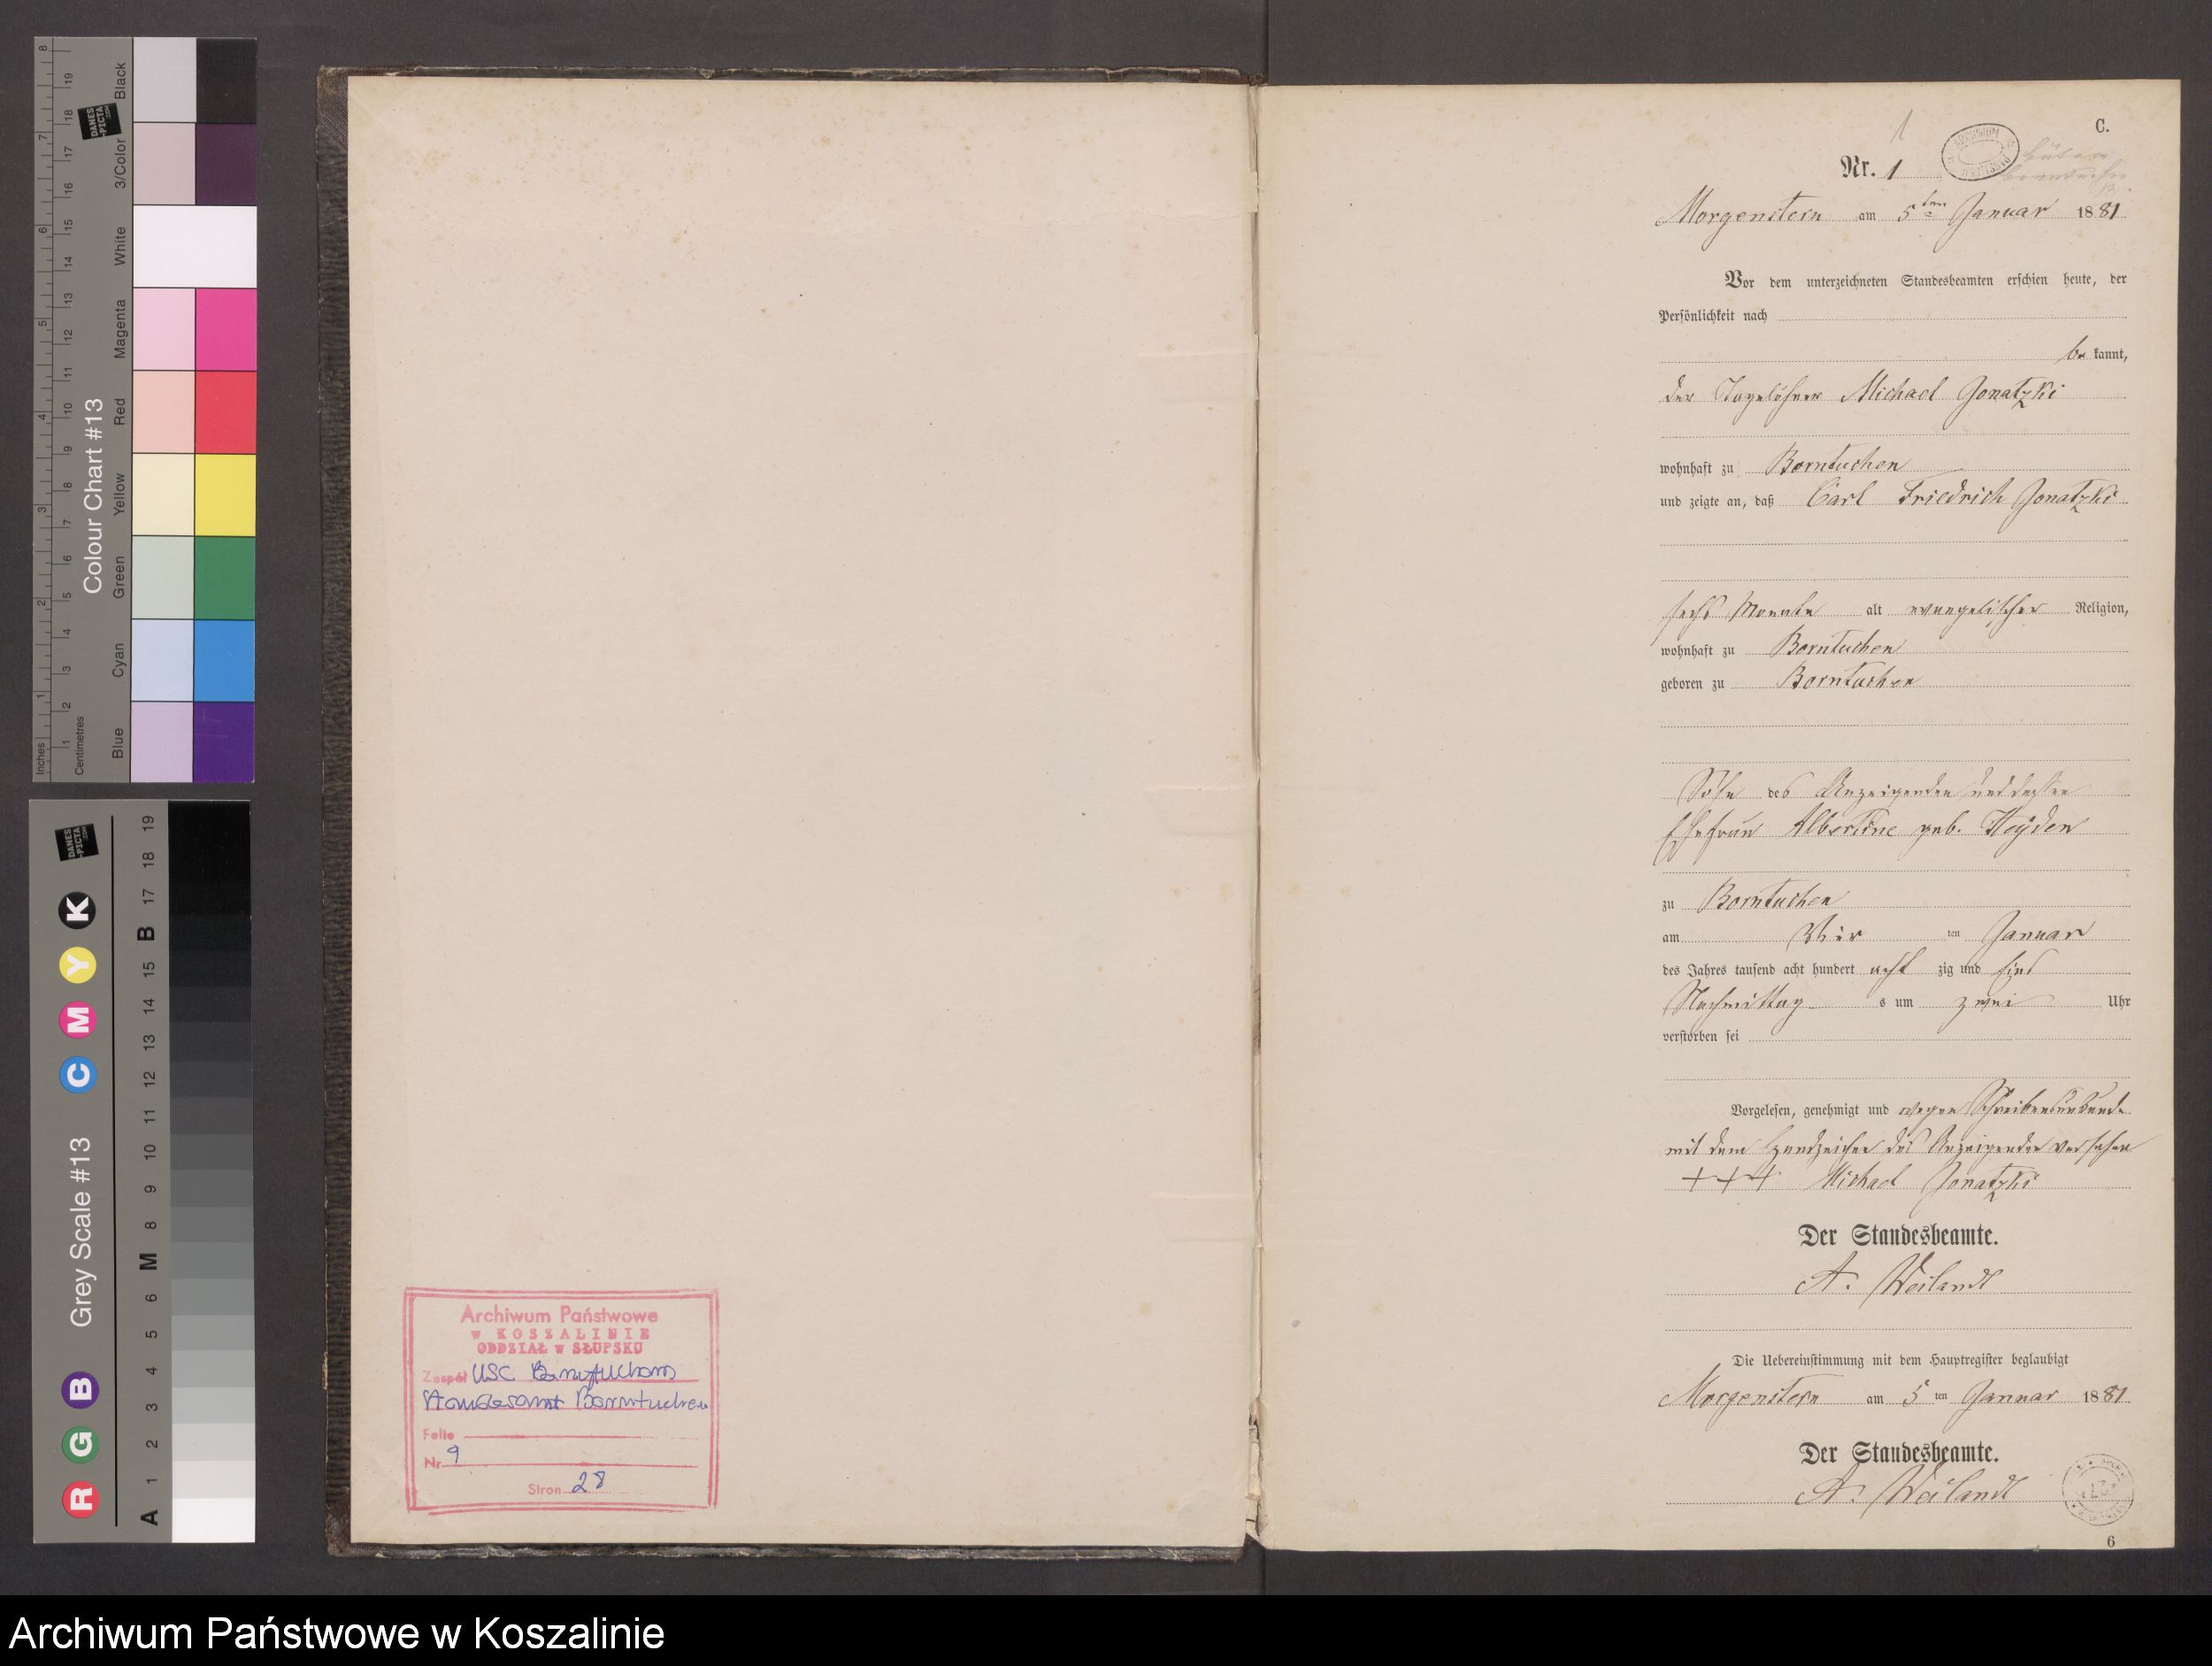 8
7
6
5
4
3
2
1
Inches
19
18
17
16
15
14
13
12
11
10
9
8
7
6
5
4
3
2
1
Centimetres
Colour Chart #13
Black
3/Color
White
Magenta
Red
Yellow
Green
Cyan
Blue
DANES
-PICTA
.COM
R G B C M Y K
Grey Scale #13
DANES
-PICTA
.COM
A 1 2 3 4 5 6 M 8 9 10 11 12 13 14 15 B 17 18 19
Archiwum Państwowe
w KOSZALINIE
ODDZIAŁ w SŁUPSKU
Zespół USC
Standesamt Borntuchen
Folio
Nr 9
Stron 28
1
C.
Nr. 1
Morgenstern am 5ten Januar 1881
Vor dem unterzeichneten Standesbeamten erschien heute, der
Persönlichkeit nach
be kannt,
der Tagelöhner Michael Jonatzki
wohnhaft zu Borntuchen
und zeigte an, daß Carl Friedrich Jonatzki
sechs Monate alt evangelischer Religion,
wohnhaft zu Borntuchen
geboren zu Borntuchen
Sohn des Anzeigenden und dessen
Ehefrau Albertine geb. Heyden
zu Borntuchen
am Vier ten Januar
des Jahres tausend acht hundert acht zig und eins
Nachmittag s um zwei Uhr
verstorben sei
Vorgelesen, genehmigt und wegen Schreibensunkunde
mit dem Handzeichen des Anzeigenden versehen
+++ Michael Jonatzki
Der Standesbeamte.
A. Weilandt
Die Uebereinstimmung mit dem Hauptregister beglaubigt
Morgenstern am 5 ten Januar 1881
Der Standesbeamte.
A. Weilandt
6
Archiwum Państwowe w Koszalinie